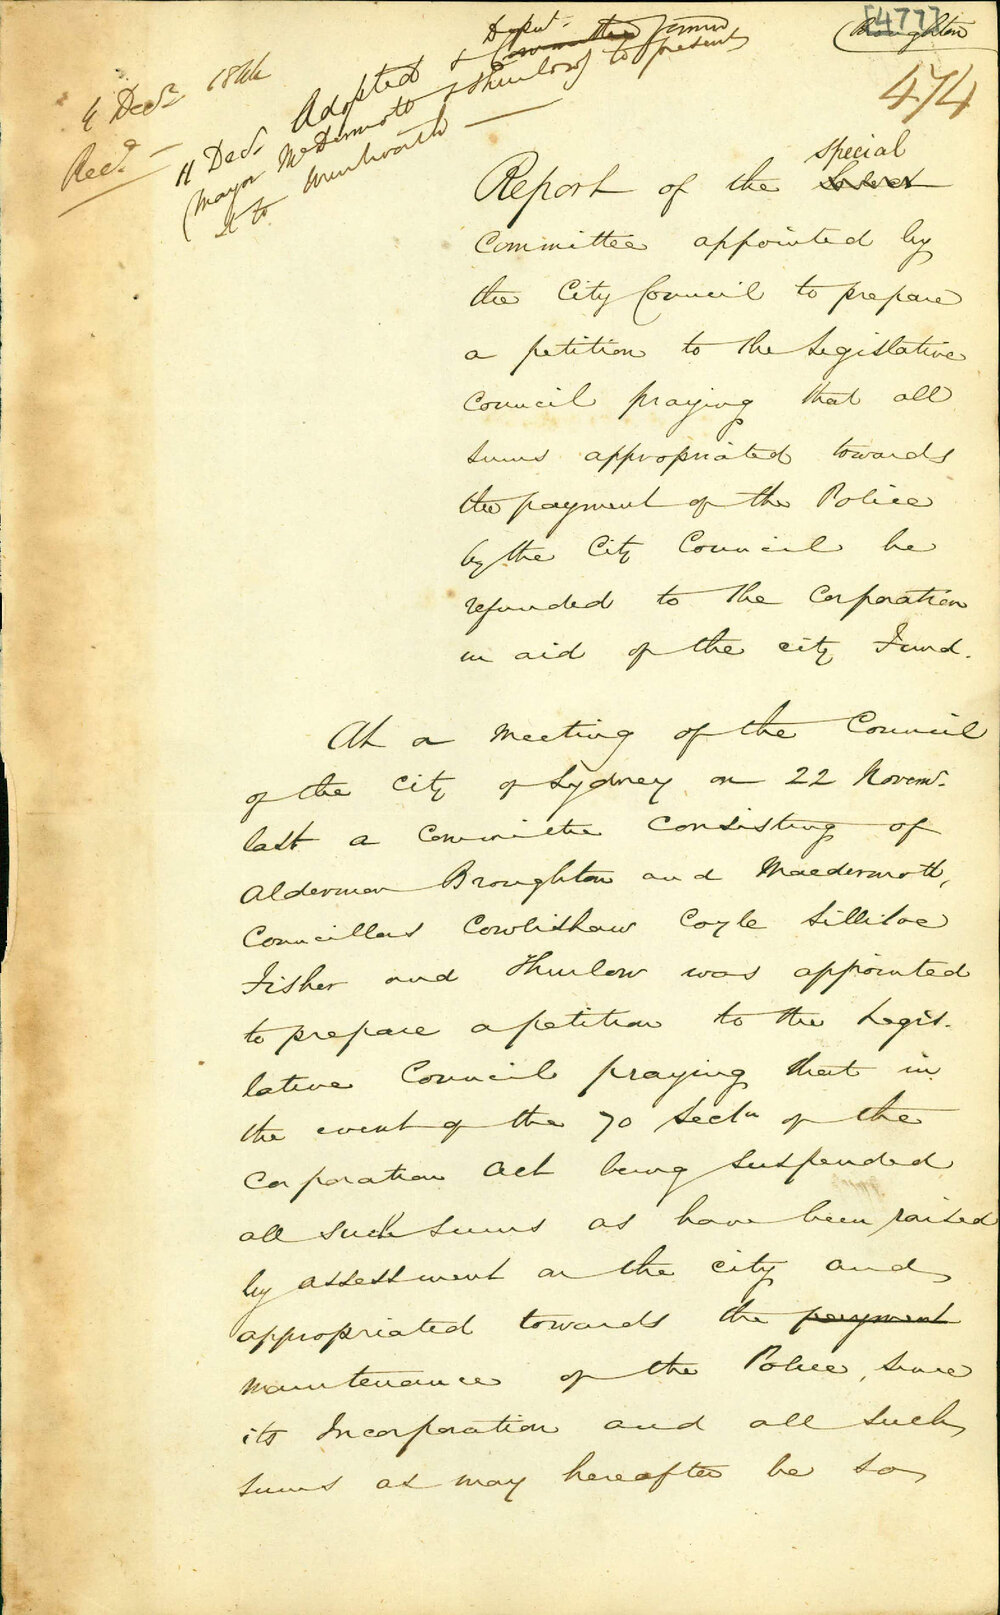 [477]
Broughton
474
4 Decr 1844
Recd
11 Decr Adopted & Deput. Committee formed
(Mayor McDermott & Thurlow) to present
it to Wentworth
special
Report of the Select
Committee appointed by
the City Council to prepare
a petition to the Legislative
Council praying that all
sums appropriated towards
the payment of the Police
by the City Council be
refunded to the Corporation
in aid of the city Fund.
At a Meeting of the Council
of the City of Sydney on 22 Novemr.
last a Committee consisting of
Aldermen Broughton and Macdermott,
Councillors Cowlishaw Coyle Sillitoe
Fisher and Thurlow was appointed
to prepare a petition to the Legis-
lative Council praying that in
the event of the 70 Sectn of the
Corporation Act being suspended
all such sums as have been raised
by assessment on the city and
appropriated towards the payment
maintenance of the Police, since
its Incorporation and all such
sums as may hereafter be so